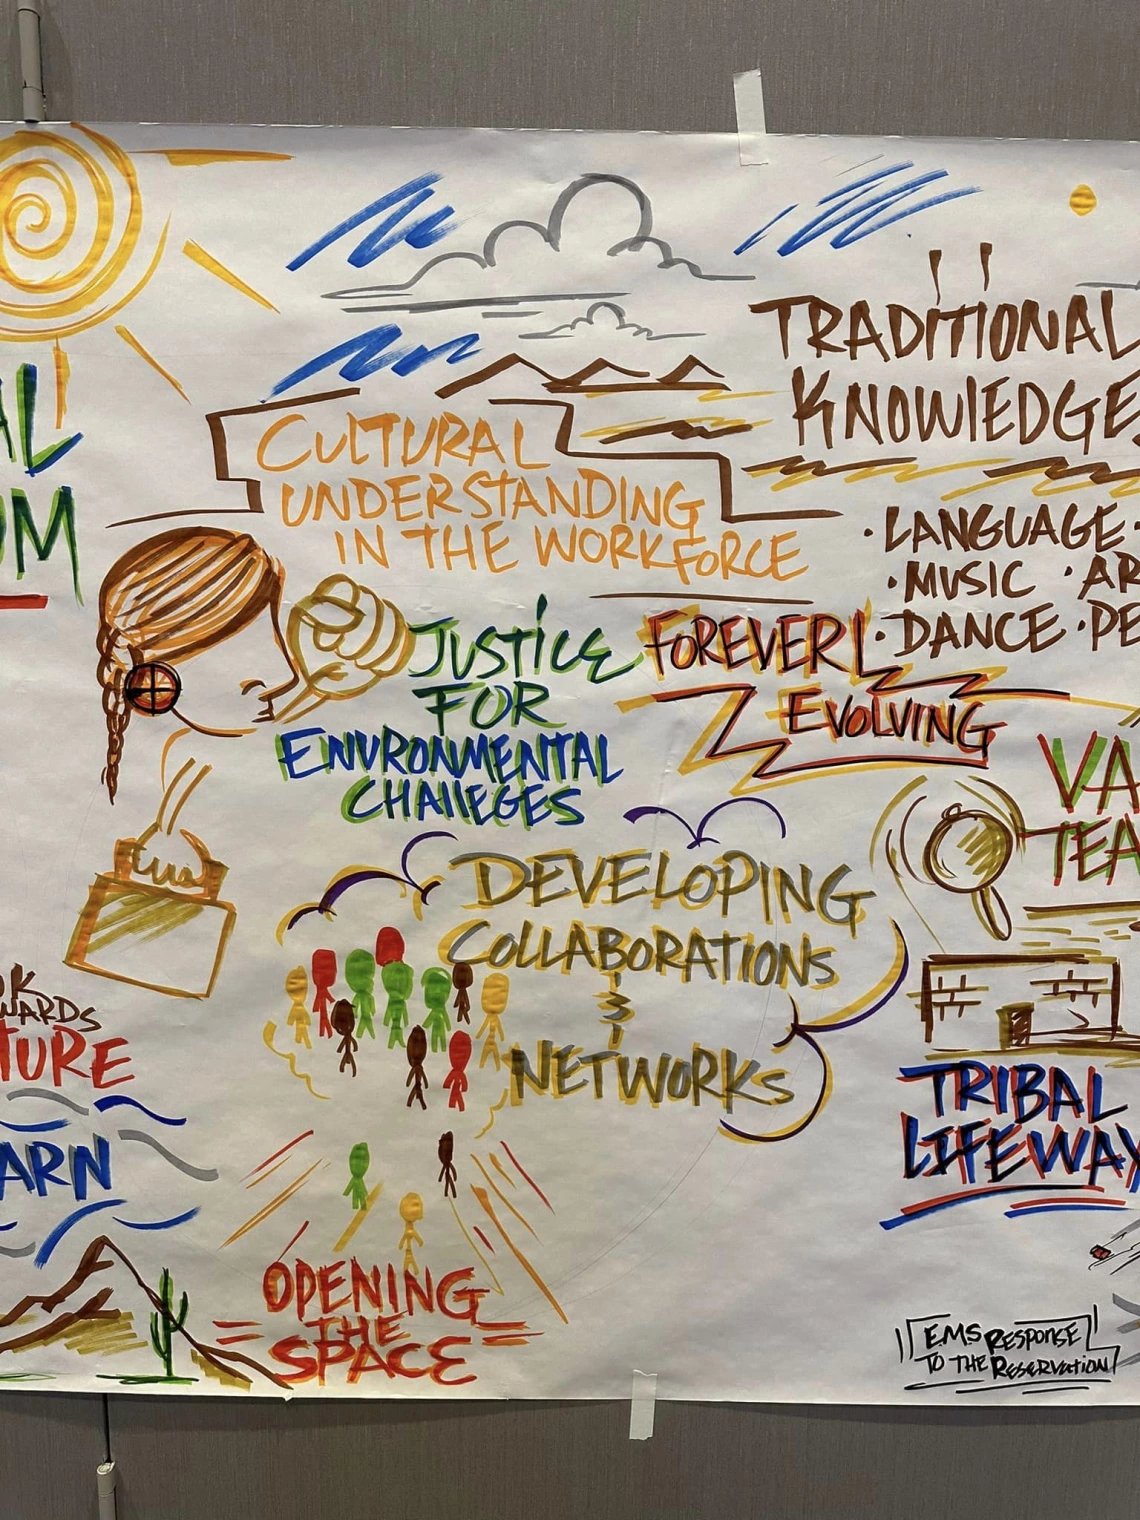 AL
UM
CULTURAL
UNDERSTANDING
IN THE WORKFORCE
TRADITIONAL
KNOWLEDGE
· LANGUAGE ·
· MUSIC · AR
· DANCE · PE
JUSTICE
FOR
ENVRONMENTAL
CHALLEGES
FOREVER
EVOLVING
VA
TEA
DEVELOPING
COLLABORATIONS
&
NETWORKS
OK
WARDS
TURE
ARN
TRIBAL
LIFEWAY
OPENING
THE
SPACE
EMS RESPONSE
TO THE RESERVATION